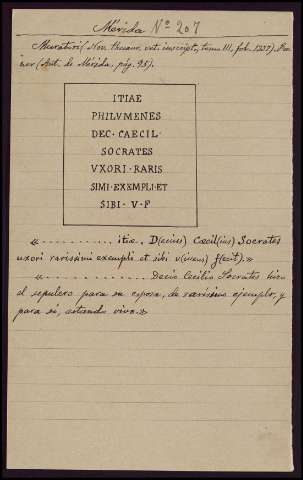 Mérida Nº 207
Muratori (Nov. thesaur. vet. inscript., tomo III, fol. 1327). For-
ner (Ant. de Mérida, pág. 95).
ITIAE
PHILVMENES
DEC · CAECIL ·
SOCRATES
VXORI · RARIS
SIMI · EXEMPLI · ET
SIBI · V · F
« . . . . . . . . . . . itiæ. D(ecius) Cæcil(ius) Socrates
uxori rarissimi exempli et sibi v(ivens) f(ecit).»
« . . . . . . . . . . . Decio Cecilio Socrates hizo
el sepulcro para su esposa, de rarísimo ejemplo, y
para sí, estando vivo.»